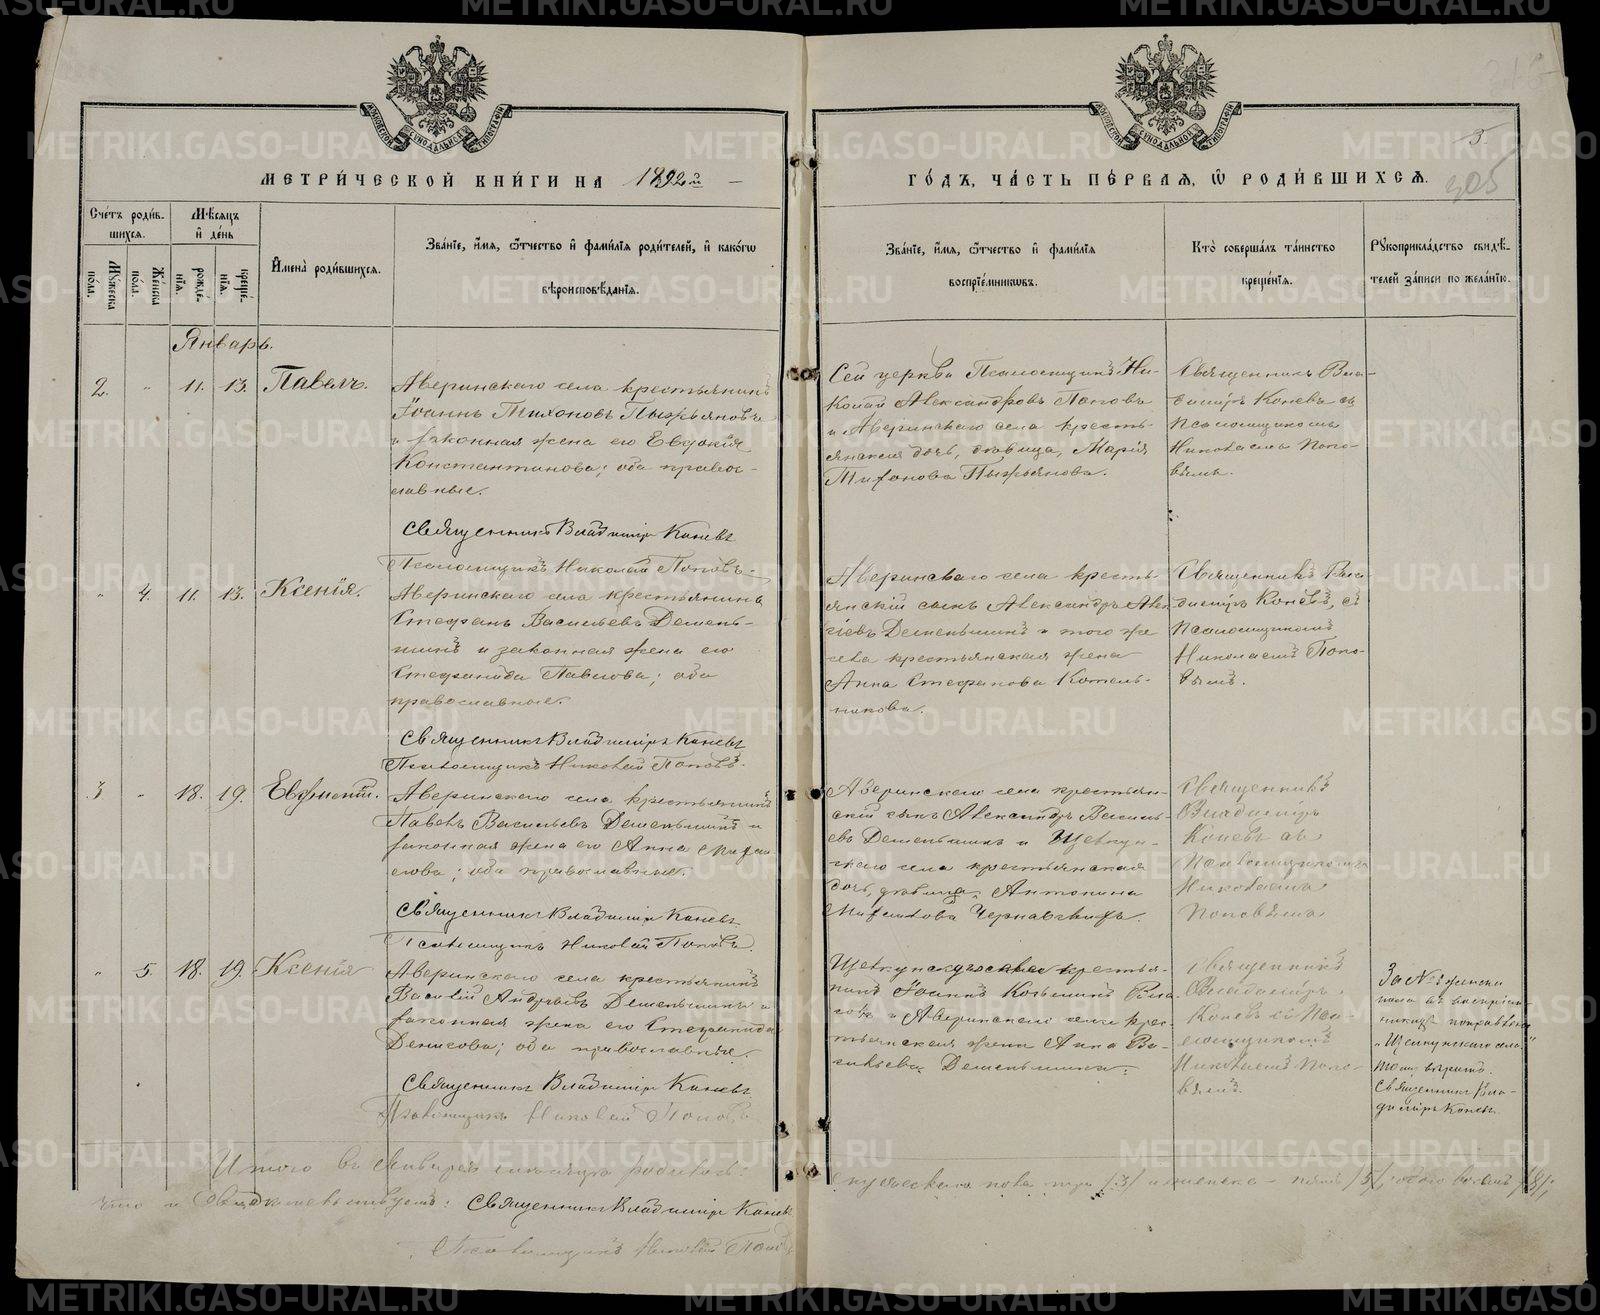 МЕТРИ́ЧЕСКОЙ КНИ́ГИ НА 1892й
ГО́ДЪ, ЧА́СТЬ ПЕ́РВАЯ, Ѡ РОДИ́ВШИХСЯ.
5.
305
Сче́тъ роди́в-
шихся.
Му́жеска по́ла.
Же́нска по́ла.
Мѣ́сяцъ и де́нь
рожде́нїя.
креще́нїя.
И҆мена̀ роди́вшихся.
Зва́нїе, и҆́мя, ѻ҆́тчество и҆ фами́лїя роди́телей, и҆ како́гѡ
вѣроисповѣ́данїя.
Зва́нїе, и҆́мя, ѻ҆́тчество и҆ фами́лїя
воспрїе́мникѡвъ.
Кто̀ соверша́лъ та́инство
креще́нїя.
Рꙋкоприкла́дство свидѣ́-
телей за́писи по жела́нїю.
Январь.
2. " 11. 13. Павелъ.
Аверинскаго села крестьянинъ
Іоаннъ Тихоновъ Пыжьяновъ
и законная жена его Евдокія
Константинова; оба правос-
лавные.
Священникъ Владиміръ Коневъ
Псаломщикъ Николай Поповъ.
Сей церкви Псаломщикъ Ни-
колай Александровъ Поповъ
и Аверинскаго села кресть-
янская дочь, дѣвица, Марія
Тихонова Пыжьянова.
Священникъ Вла-
диміръ Коневъ съ
Псаломщикомъ
Николаемъ Попо-
вымъ.
" 4. 11. 13. Ксенія.
Аверинскаго села крестьянинъ
Стефанъ Васильевъ Демень-
шинъ и законная жена его
Стефанида Павлова; оба
православные.
Священникъ Владиміръ Коневъ
Псаломщикъ Николай Поповъ.
Аверинскаго села кресть-
янскій сынъ Александръ
Деменьшинъ и того же
села крестьянская жена
Анна Стефанова Котель-
никова.
Священникъ Вла-
диміръ Коневъ, съ
Псаломщикомъ
Николаемъ Попо-
вымъ.
3 " 18. 19. Евфимій.
Аверинскаго села крестьянинъ
Павелъ Васильевъ Деменьшинъ и
законная жена его Анна
оба православные.
Священникъ Владиміръ Коневъ
Псаломщикъ Николай Поповъ.
Аверинскаго села крестьян-
скій сынъ Александръ Василь-
евъ Деменьшинъ и Щелкун-
скаго села крестьянская
дочь, дѣвица, Антонина
Священникъ
Владиміръ
Коневъ съ
Псаломщикомъ
Николаемъ
Поповымъ
" 5. 18. 19. Ксенія
Аверинскаго села крестьянинъ
Василій Андреевъ Деменьшинъ и
законная жена его Стефанида
Денисова; оба православные.
Священникъ Владиміръ Коневъ
Псаломщикъ Николай Поповъ
Щелкунскаго села крестья-
нинъ Іоаннъ Козьминъ
и Аверинскаго села крес-
тьянская жена Анна Ва-
сильева Деменьшина.
Священникъ
Владиміръ
Коневъ съ Пса-
ломщикомъ
Николаемъ Попо-
вымъ.
За № 5 женска
пола въ воспріем-
никахъ поправлено
"Щелкунскаго села"
тому вѣрить.
Священникъ Вла-
диміръ Коневъ.
Итого въ Январѣ мѣсяцѣ родилось:
мужескаго пола три /3/ и женска - пять /5/, обоего восемь /8/;
что и свидѣтельствуемъ: Священникъ Владиміръ Коневъ
Псаломщикъ Николай Поповъ
METRIKI.GASO-URAL.RU